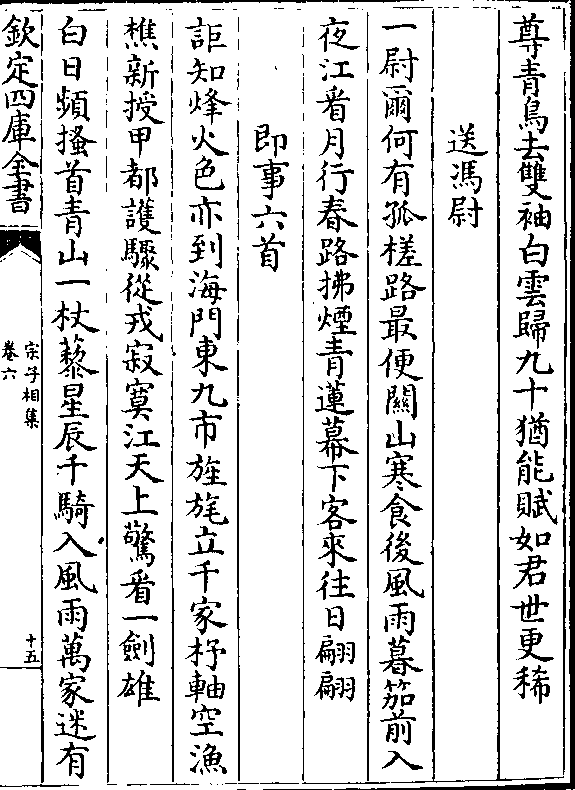 尊青鳥去雙袖白雲歸九十猶能賦如君世更稀
送馮尉
一尉爾何有孤槎路最便關山寒食後風雨暮笳前入
夜江看月行春路拂煙青蓮幕下客來往日翩翩
即事六首
詎知烽火色亦到海門東九市旌旄立千家杼軸空漁
樵新授甲都護驟從戎寂寞江天上驚看一劍雄
白日頻搔首青山一杖藜星辰千騎入風雨萬家迷有
欽定四庫全書
宗子相集
卷六
十五